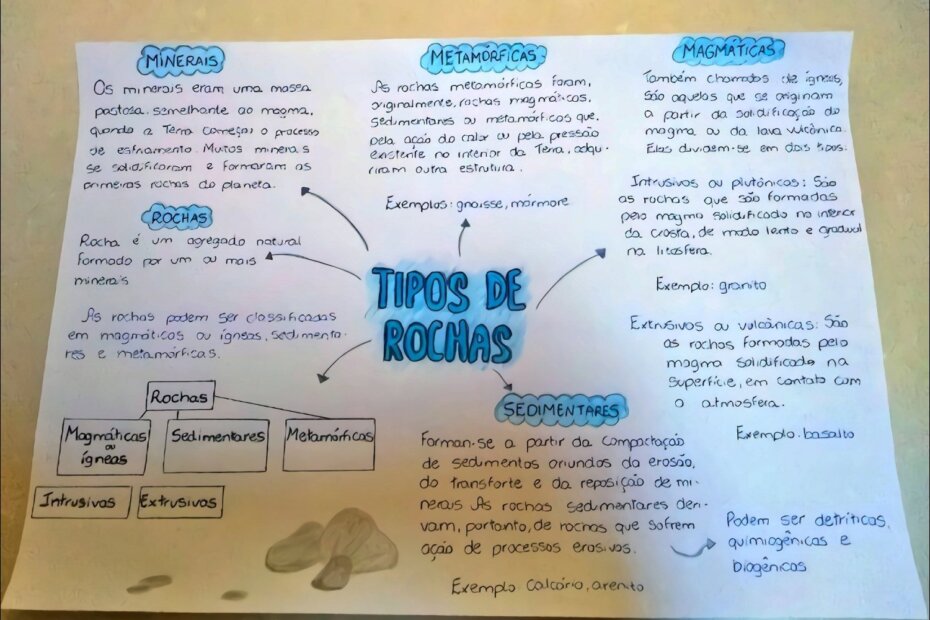 MINERAIS
Os minerais eram uma massa
pastosa, semelhante ao magma,
quando a Terra começou o processo
de esfriamento. Muitos minerais
se solidificaram e formaram as
primeiras rochas do planeta.
ROCHAS
Rocha é um agregado natural
formado por um ou mais
minerais
As rochas podem ser classificadas
em magmáticas ou ígneas, sedimenta-
res e metamórficas.
Rochas
Magmáticas
ou
ígneas
Sedimentares
Metamórficas
Intrusivas
Extrusivas
METAMÓRFICAS
As rochas metamórficas foram,
originalmente, rochas magmáticas,
sedimentares ou metamórficas que,
pela ação do calor ou pela pressão
existente no interior da Terra, adqui-
riram outra estrutura.
Exemplos: gnaisse, mármore
TIPOS DE
ROCHAS
MAGMÁTICAS
Também chamadas de ígneas,
são aquelas que se originam
a partir da solidificação do
magma ou da lava vulcânica.
Elas dividem-se em dois tipos:
Intrusivas ou plutônicas: São
as rochas que são formadas
pelo magma solidificado no interior
da crosta, de modo lento e gradual
na litosfera.
Exemplo: granito
Extrusivas ou vulcânicas: São
as rochas formadas pelo
magma solidificado na
superfície, em contato com
a atmosfera.
Exemplo: basalto
SEDIMENTARES
Forman-se a partir da compactação
de sedimentos oriundos da erosão,
do transporte e da reposição de mi-
nerais As rochas sedimentares deri-
vam, portanto, de rochas que sofrem
ação de processos erosivos.
Exemplo Calcário, arenito
Podem ser detríticas,
quimiogênicas e
biogênicas